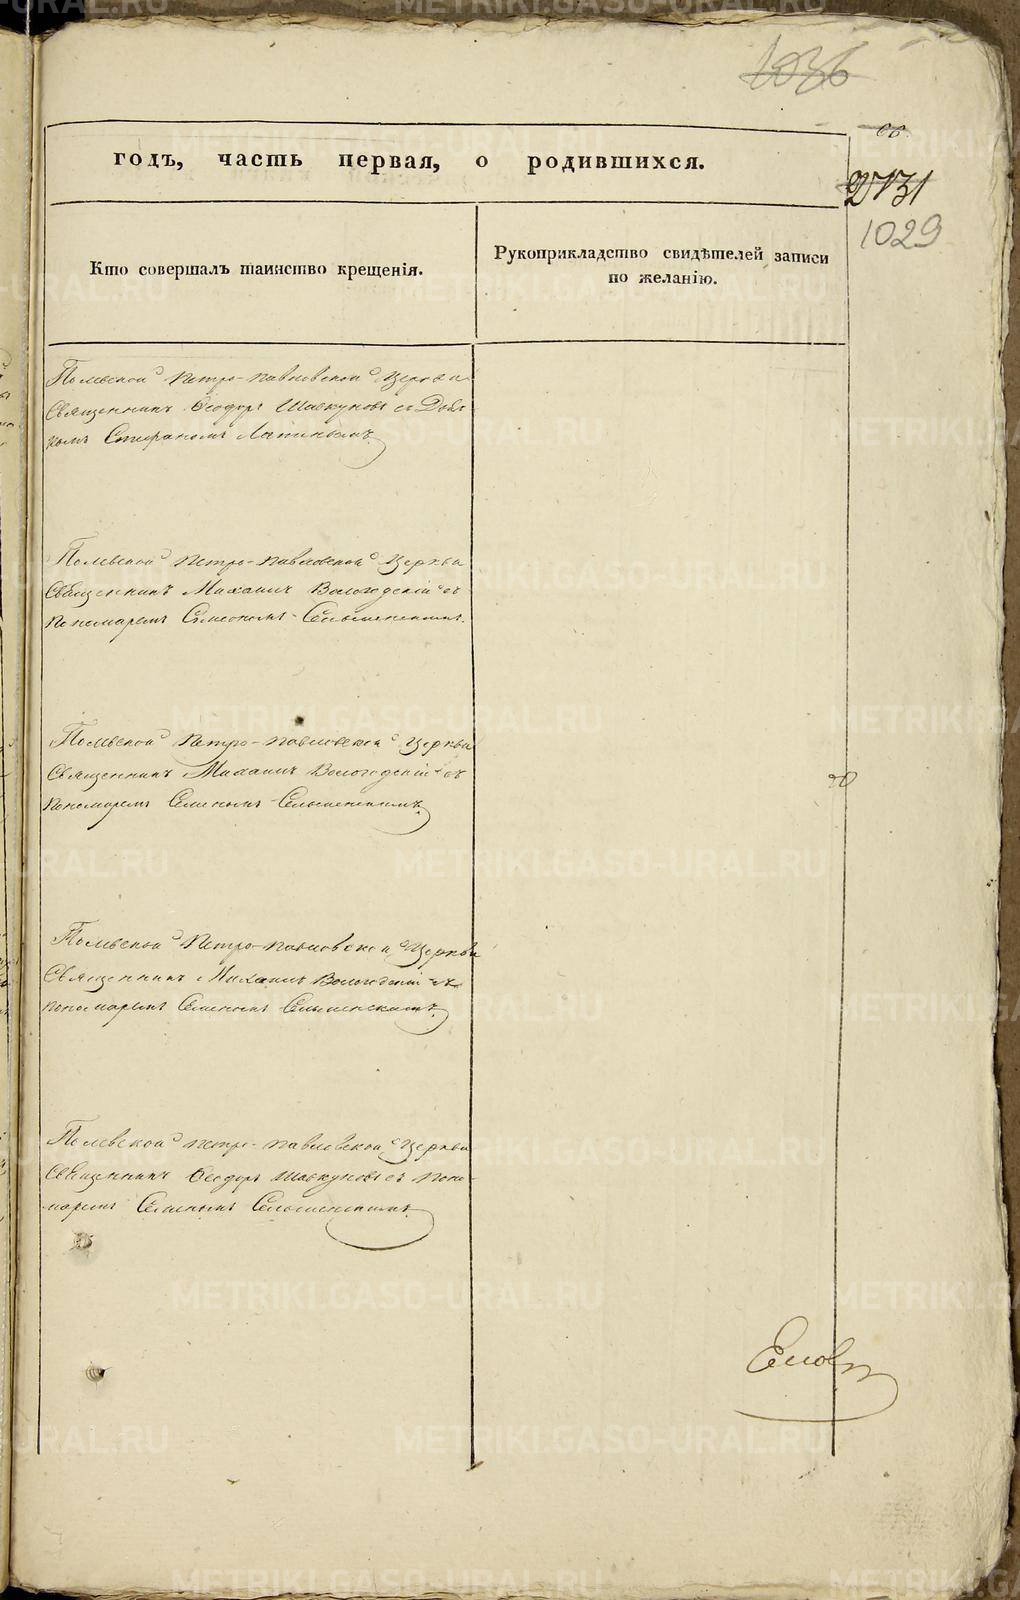 1036
66.
2731
1029
годъ, часть первая, о родившихся.
Кто совершалъ таинство крещенія.
Рукоприкладство свидѣтелей записи
по желанію.
Полевской Петро-Павловской Церкви
Священникъ Ѳеодоръ Шавкуновъ съ Дья-
комъ Стефаномъ
Полевской Петро-Павловской Церкви
Священникъ Михаилъ Вологодскій съ
Пономаремъ Симеономъ
Полевской Петро-Павловской Церкви
Священникъ Михаилъ Вологодскій съ
Пономаремъ Семеномъ
Полевской Петро-Павловской Церкви
Священникъ Михаилъ Вологодскій съ
пономаремъ Семеномъ
Полевской Петро-Павловской Церкви
Священникъ Ѳеодоръ Шавкуновъ съ Поно-
маремъ Семеномъ
METRIKI.GASO-URAL.RU